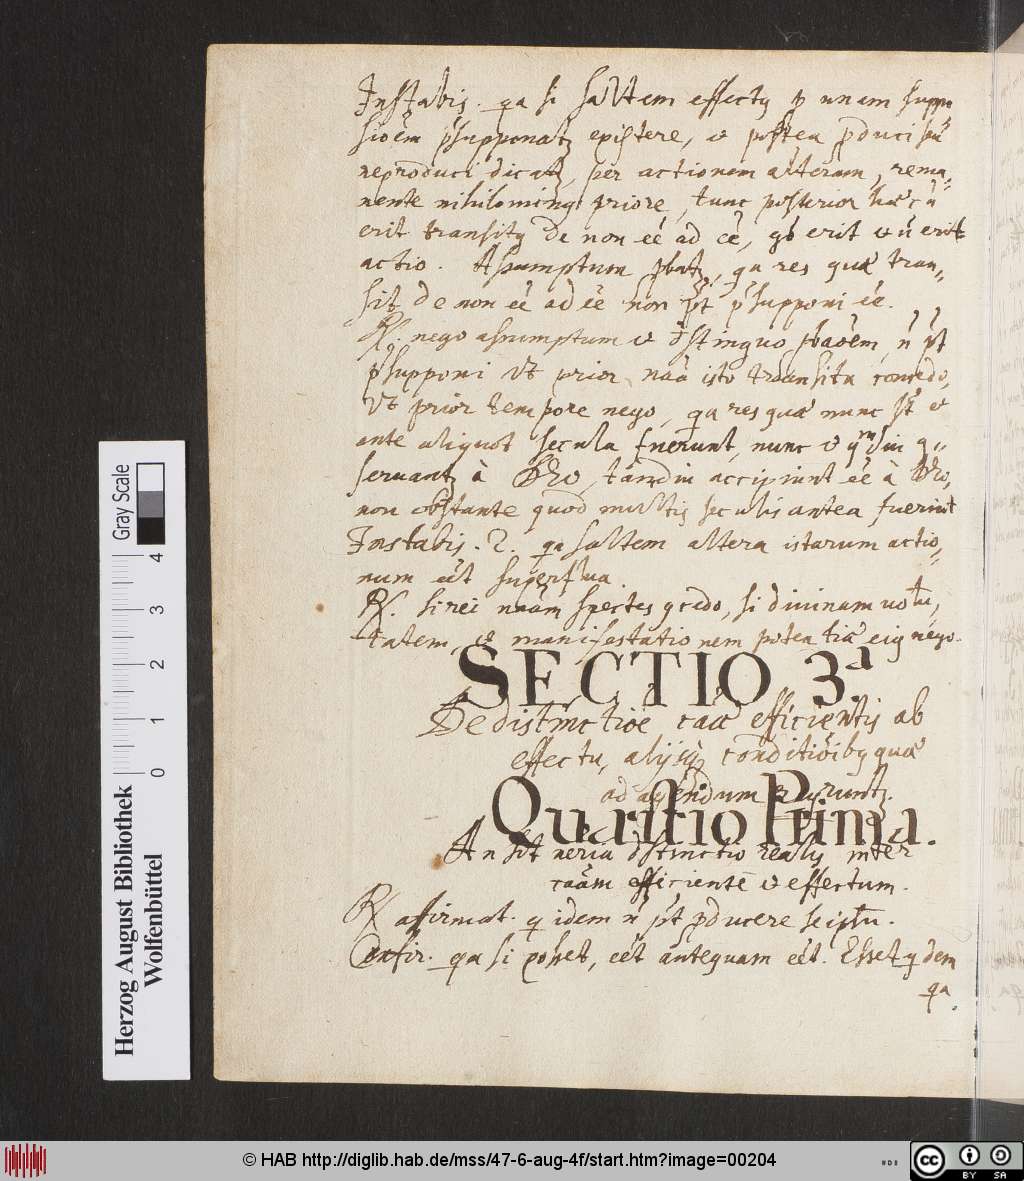 Instabis. qa si saltem effectq p unam suppo
sioēm p̄supponatz existere, et postea p̄duci seu
reproduci dicatz, per actionem alteram, rema,,
nente nihilominq priore, tunc posterior haec ñ
erit transitq de non eē ad eē, gō erit et ñ erit
actio. Assumptum p̄batz, qa res quae tran,,
sit de non eē ad eē non pt p̄supponi eē.
R. nego assumptum et distinguo p̄baōem, ñ pt
p̄supponi ut prior naā isto transitu concedo,
ut prior tempore nego, qa res quae nunc st et
ante aliquot secula fuerunt, nunc et qmdiu q,,
servantz à Deo, tamdiu accipiunt eē à Deo,
non obstante quod multis seculis antea fuerint
Instabis. 2. qa saltem altera istarum actio,,
num eēt superflua.
R. si rei naām spectes qcedo, si divinam volu,,
tatem, et manifestationem potentiae eiq nego.
SECTIO 3.ª
De distinctioē caāe efficientis ab
effectu, alijsq conditioibq quae
ad agendum reqruntz.
Quaestio Prima.
An sit neria distinctio realis inter
caām efficientē et effectum.
R affirmat. q idem ñ pt p̄ducere seipsu.
Confir. qa si posset, eēt antequam eēt. Esset qdem
qa
Herzog August Bibliothek
Wolfenbüttel
0 1 2 3 4
Gray Scale
© HAB http://diglib.hab.de/mss/47-6-aug-4f/start.htm?image=00204
cc BY SA